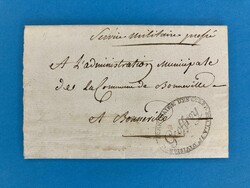 Service militaire pressé
A L'administration Municipale
de la Commune de Bonneville
A Bonneville